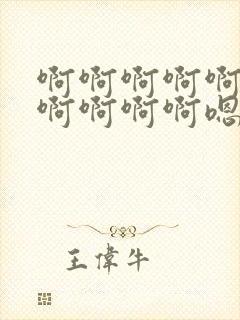 啊啊啊啊啊
啊啊啊啊嗯
王偉牛